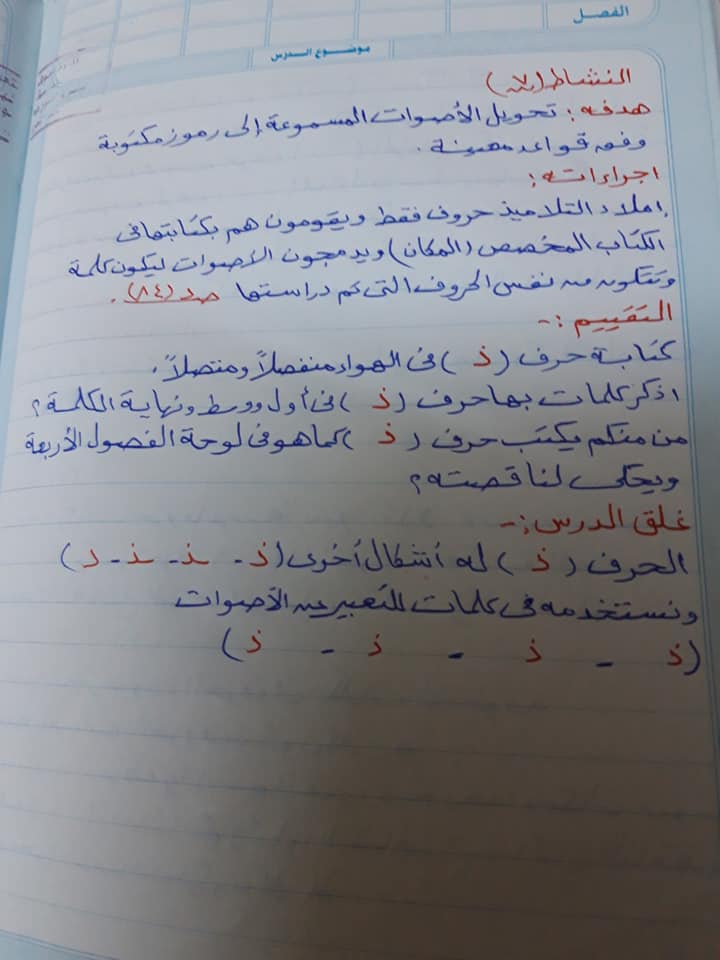 الفصل
موضوع الدرس
النشاط (٧)
هدفه: تحويل الأصوات المسموعة إلى رموز مكتوبة
وفق قواعد معينة.
اجراءاته:
إملاء التلاميذ حروف فقط ويقومون هم بكتابتها فى
الكتاب المخصص (المكان) ويدمجون الأصوات ليكون كلمة
وتتكون من نفس الحروف التى تم دراستها صـ (٨٤).
التقييم :-
كتابة حرف ( ذ ) فى الهواء منفصلاً ومتصلاً.
اذكر كلمات بها حرف ( ذ ) فى أول ووسط ونهاية الكلمة؟
من منكم يكتب حرف ( ذ ) كما هو فى لوحة الفصول الأربعة
ويحكى لنا قصته؟
غلق الدرس :-
الحرف ( ذ ) له أشكال أخرى (ذ - ـذ - ـذ - ذ)
ونستخدمه فى كلمات للتعبير عن الأصوات
(ذ - ذ - ذ - ذ)